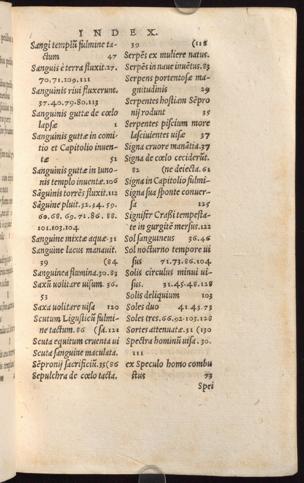 INDEX.
Sangi templū fulmine ta-
ctum 47
Sanguis è terra fluxit. 27.
70. 71. 109. 121
Sanguinis riui fluxerunt.
37. 40. 79. 80. 113
Sanguinis guttæ de cœlo
lapsæ 5
Sanguinis guttæ in comi-
tio et Capitolio inuen-
tæ 52
Sanguinis guttæ in Iuno-
nis templo inuentæ. 106
Sāguinis torrēs fluxit. 112
Sāguine pluit. 52. 54. 59.
60. 68. 69. 71. 86. 88.
101. 103. 104
Sanguine mixtæ aquæ. 51
Sanguine lacus manauit.
39 (84
Sanguinea flumina. 30. 83
Saxū uolitare uisum. 36.
53
Saxa uolitare uisa 120
Scutum Ligusticū fulmi-
ne tactum. 86 (sa. 121
Scuta equitum cruenta ui
Scuta sanguine maculata.
Sēpronij sacrificiū. 35 (86
Sepulchra de cœlo tacta.
39 (118
Serpēs ex muliere natus.
Serpēs in naue inuētus. 83
Serpens portentosæ ma-
gnitudinis 29
Serpentes hostiam Sēpro
nij rodunt 35
Serpentes piscium more
lasciuientes uisæ 37
Signa cruore manātia. 37
Signa de cœlo ceciderūt.
82 (ne deiecta. 61
Signa in Capitolio fulmi-
Signa sua sponte conuer-
sa 125
Signifer Crassi tempesta-
te in gurgitē mersus. 122
Sol sanguneus 36. 46
Sol nocturno tempore ui
sus 71. 73. 86. 104
Solis circulus minui ui-
sus. 31. 45. 48. 128
Solis deliquium 103
Soles duo 41. 45. 73
Soles tres. 66. 92. 105. 128
Sortes attenuatæ. 51 (130
Spectra hominū uisa. 30.
111
ex Speculo homo combu
stus 73
Spei